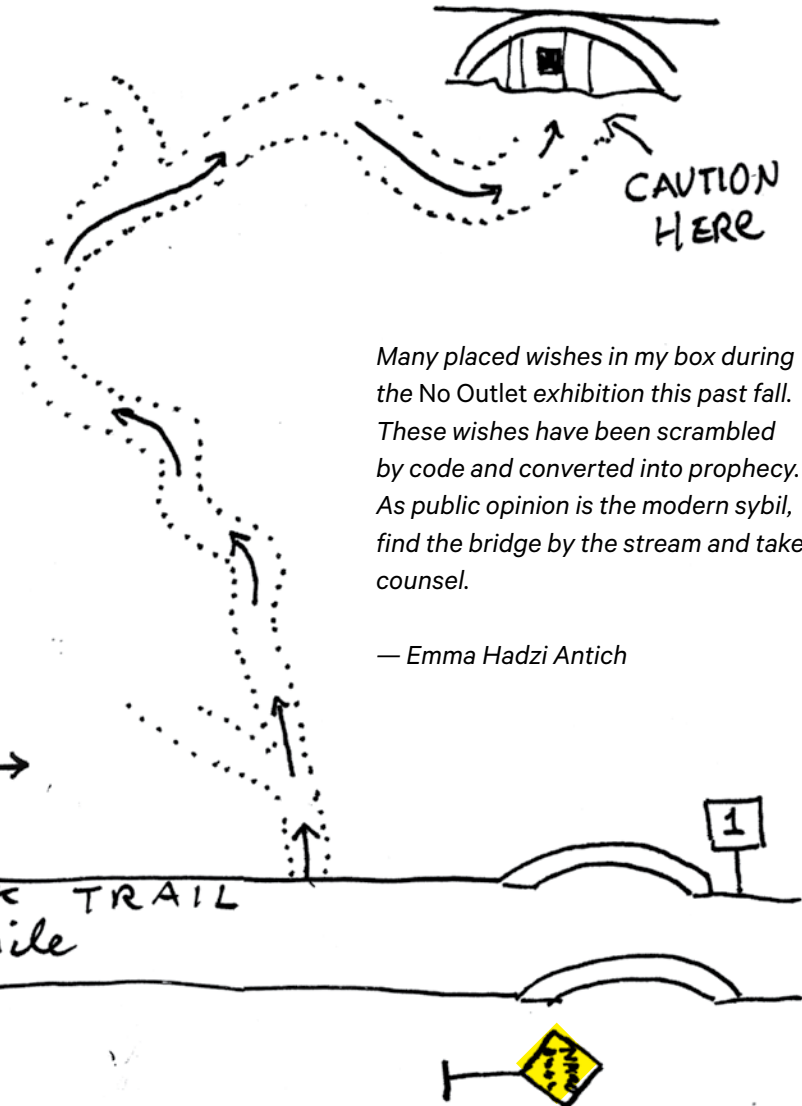 CAUTION
HERE
Many placed wishes in my box during
the No Outlet exhibition this past fall.
These wishes have been scrambled
by code and converted into prophecy.
As public opinion is the modern sybil,
find the bridge by the stream and take
counsel.
— Emma Hadzi Antich
1
TRAIL